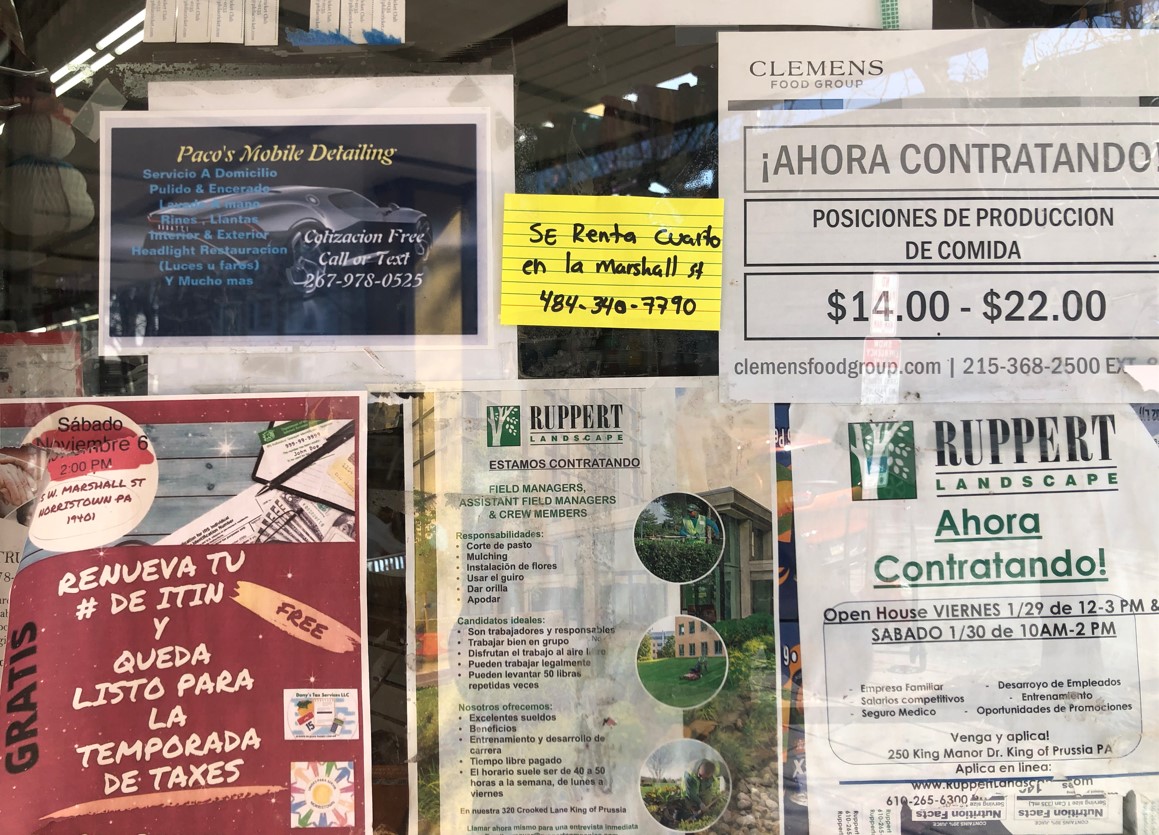 Paco's Mobile Detailing
Servicio A Domicilio
Pulido & Encerado
Lavado A mano
Rines , Llantas
Interior & Exterior
Headlight Restauracion
(Luces u faros)
Y Mucho mas
Cotizacion Free
Call or Text
267-978-0525
SE Renta Cuarto
en la Marshall st
484-340-7790
CLEMENS
FOOD GROUP
¡AHORA CONTRATANDO!
POSICIONES DE PRODUCCION
DE COMIDA
$14.00 - $22.00
clemensfoodgroup.com | 215-368-2500 EXT.
Sábado
Noviembre 6
2:00 PM
W. MARSHALL ST
NORRISTOWN PA
19401
RENUEVA TU
# DE ITIN
Y
QUEDA
LISTO PARA
LA
TEMPORADA
DE TAXES
FREE
GRATIS
RUPPERT
LANDSCAPE
ESTAMOS CONTRATANDO
FIELD MANAGERS,
ASSISTANT FIELD MANAGERS
& CREW MEMBERS
Responsabilidades:
• Corte de pasto
• Mulching
• Instalación de flores
• Usar el guiro
• Dar orilla
• Apodar
Candidatos ideales:
• Son trabajadores y responsables
• Trabajar bien en grupo
• Disfrutan el trabajo al aire
• Pueden trabajar legalmente
• Pueden levantar 50 libras
repetidas veces
Nosotros ofrecemos:
• Excelentes sueldos
• Beneficios
• Entrenamiento y desarrollo de
carrera
• Tiempo libre pagado
• El horario suele ser de 40 a 50
horas a la semana, de lunes a
viernes
En nuestra 320 Crooked Lane King of Prussia
Llamar ahora mismo para una entrevista inmediata
RUPPERT
LANDSCAPE
Ahora
Contratando!
Open House VIERNES 1/29 de 12-3 PM &
SABADO 1/30 de 10AM-2 PM
- Empresa Familiar
- Salarios competitivos
- Seguro Medico
- Desarroyo de Empleados
- Entrenamiento
- Oportunidades de Promociones
Venga y aplica!
250 King Manor Dr. King of Prussia PA
Aplica en linea:
610-265-6300
Nutrition Facts
Nutrition Facts